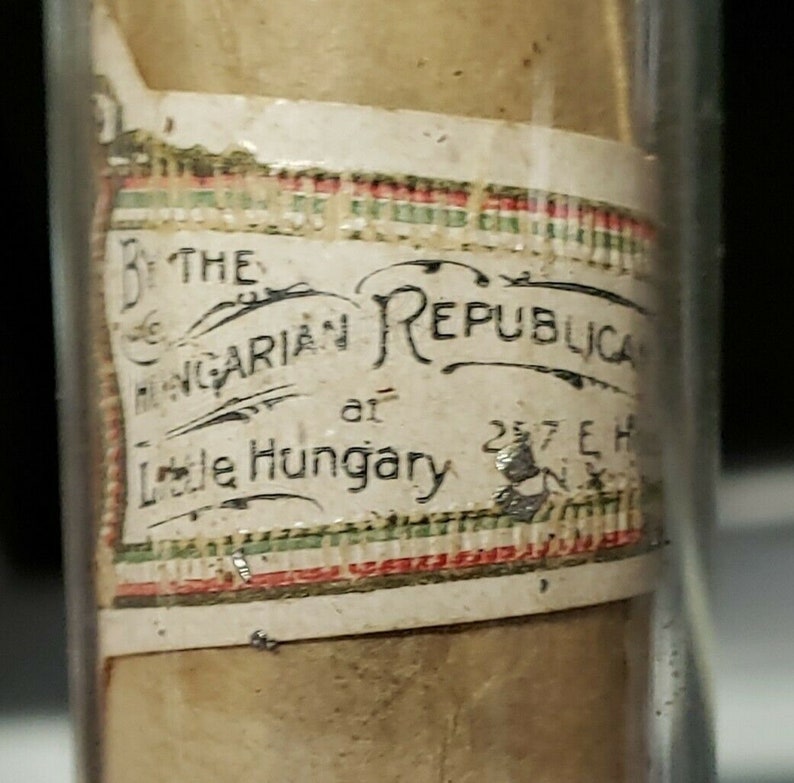 By THE
HUNGARIAN REPUBLICA
at
Little Hungary 257 E H
N.Y.